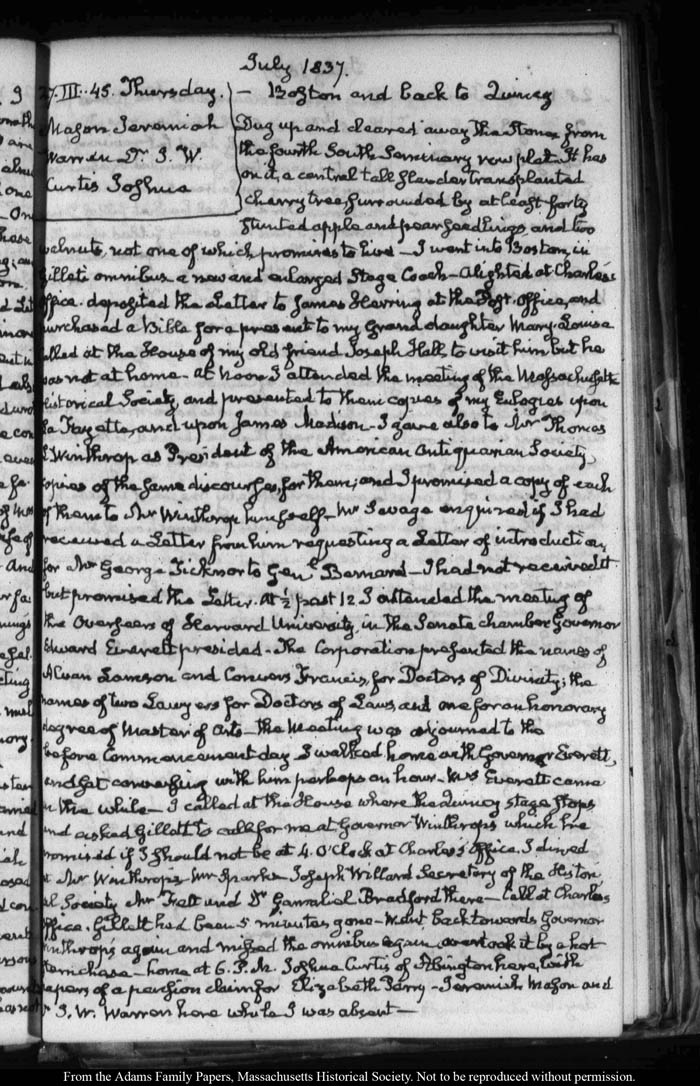 July 1837.
27. III..45. Thursday.
Mason Jeremiah
Warren Dr. J. W.
Curtis Joshua
— Boston and back to Quincy
Dug up and cleared away the Stones from
the fourth South Seminary row plat. It has
on it, a central tall slender transplanted
cherry tree, surrounded by at least forty
stunted apple and pear seedlings, and two
walnuts, not one of which promises to live — I went into Boston, in
Gillett's omnibus a new and enlarged Stage Coach — Alighted at Charles's
Office. deposited the Letter to James Herring at the Post-Office, and
purchased a Bible for a present to my Grand daughter Mary-Louisa
called at the House of my old friend Joseph Hall, to visit him but he
was not at home — at Noon I attended the meeting of the Massachusetts
Historical Society, and presented to them copies of my Eulogies upon
La Fayette, and upon James Madison — I gave also to Mr Thomas
L Winthrop as President of the American Antiquarian Society,
copies of the same discourses, for them; and I promised a copy of each
of them to Mr Winthrop himself — Mr Savage enquired if I had
received a Letter from him requesting a Letter of introduction,
for Mr George Ticknor to Genl Bernard — I had not received it
but promised the Letter. At ½ past 12 I attended the meeting of
the Overseers of Harvard University, in the Senate chamber Governor
Edward Everett presided — The Corporation presented the names of
Alvan Lamson and Convers Francis, for Doctors of Divinity; the
names of two Lawyers for Doctors of Laws, and one for an honorary
degree of Master of Arts — the Meeting was adjourned to the
before Commencement day I walked home with Governor Everett,
and sat conversing with him perhaps an hour — Mrs Everett came
in the while — I called at the House where the Quincy stage stops
and asked Gillett to call for me at Governor Winthrop's which he
promised if I should not be at 4. O'Clock at Charles's Office. I dined
at Mr Winthrop's — Mr Sparks — Joseph Willard Secretary of the Histori
al Society Mr Tatt and Dr Gamaliel Bradford there — Call at Charles's
Office. Gillett had been 5 minutes gone — Went back towards Governor
Winthrop's again and missed the omnibus again, overtook it by a hot
chase — home at 6. P.M. Joshua Curtis of Abington here, with
papers of a pension claim for Elizabeth Parry — Jeremiah Mason and
J. W. Warren here while I was absent —
From the Adams Family Papers, Massachusetts Historical Society. Not to be reproduced without permission.